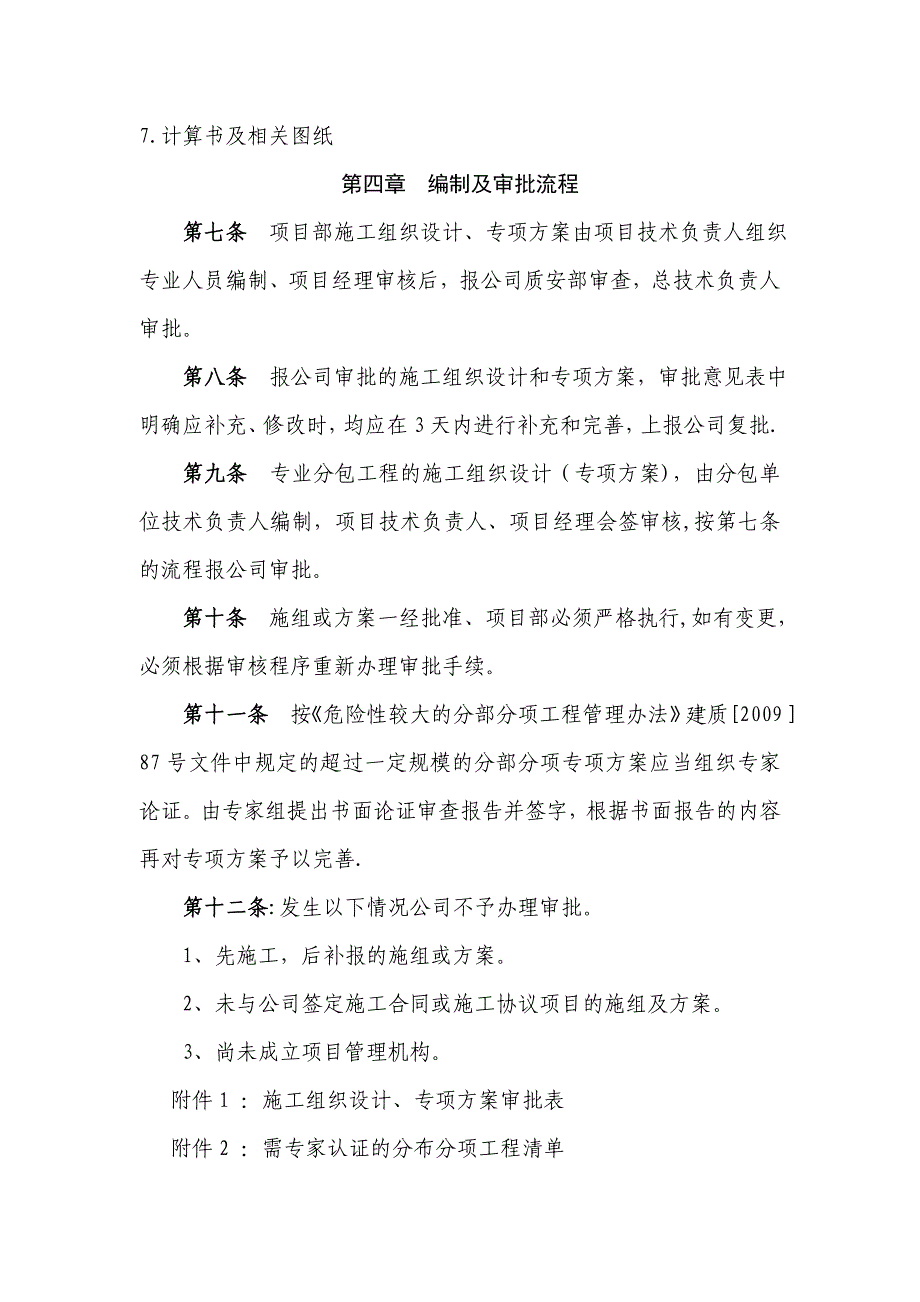 7.计算书及相关图纸
第四章　编制及审批流程
第七条　项目部施工组织设计、专项方案由项目技术负责人组织
专业人员编制、项目经理审核后，报公司质安部审查，总技术负责人
审批。
第八条　报公司审批的施工组织设计和专项方案，审批意见表中
明确应补充、修改时,均应在 3 天内进行补充和完善,上报公司复批.
第九条　专业分包工程的施工组织设计（专项方案），由分包单
位技术负责人编制，项目技术负责人、项目经理会签审核,按第七条
的流程报公司审批。
第十条　施组或方案一经批准、项目部必须严格执行,如有变更，
必须根据审核程序重新办理审批手续。
第十一条　按《危险性较大的分部分项工程管理办法》建质[2009]
87 号文件中规定的超过一定规模的分部分项专项方案应当组织专家
论证。由专家组提出书面论证审查报告并签字，根据书面报告的内容
再对专项方案予以完善.
第十二条:发生以下情况公司不予办理审批。
1、先施工，后补报的施组或方案。
2、未与公司签定施工合同或施工协议项目的施组及方案。
3、尚未成立项目管理机构。
附件 1 ：施工组织设计、专项方案审批表
附件 2 ：需专家认证的分布分项工程清单